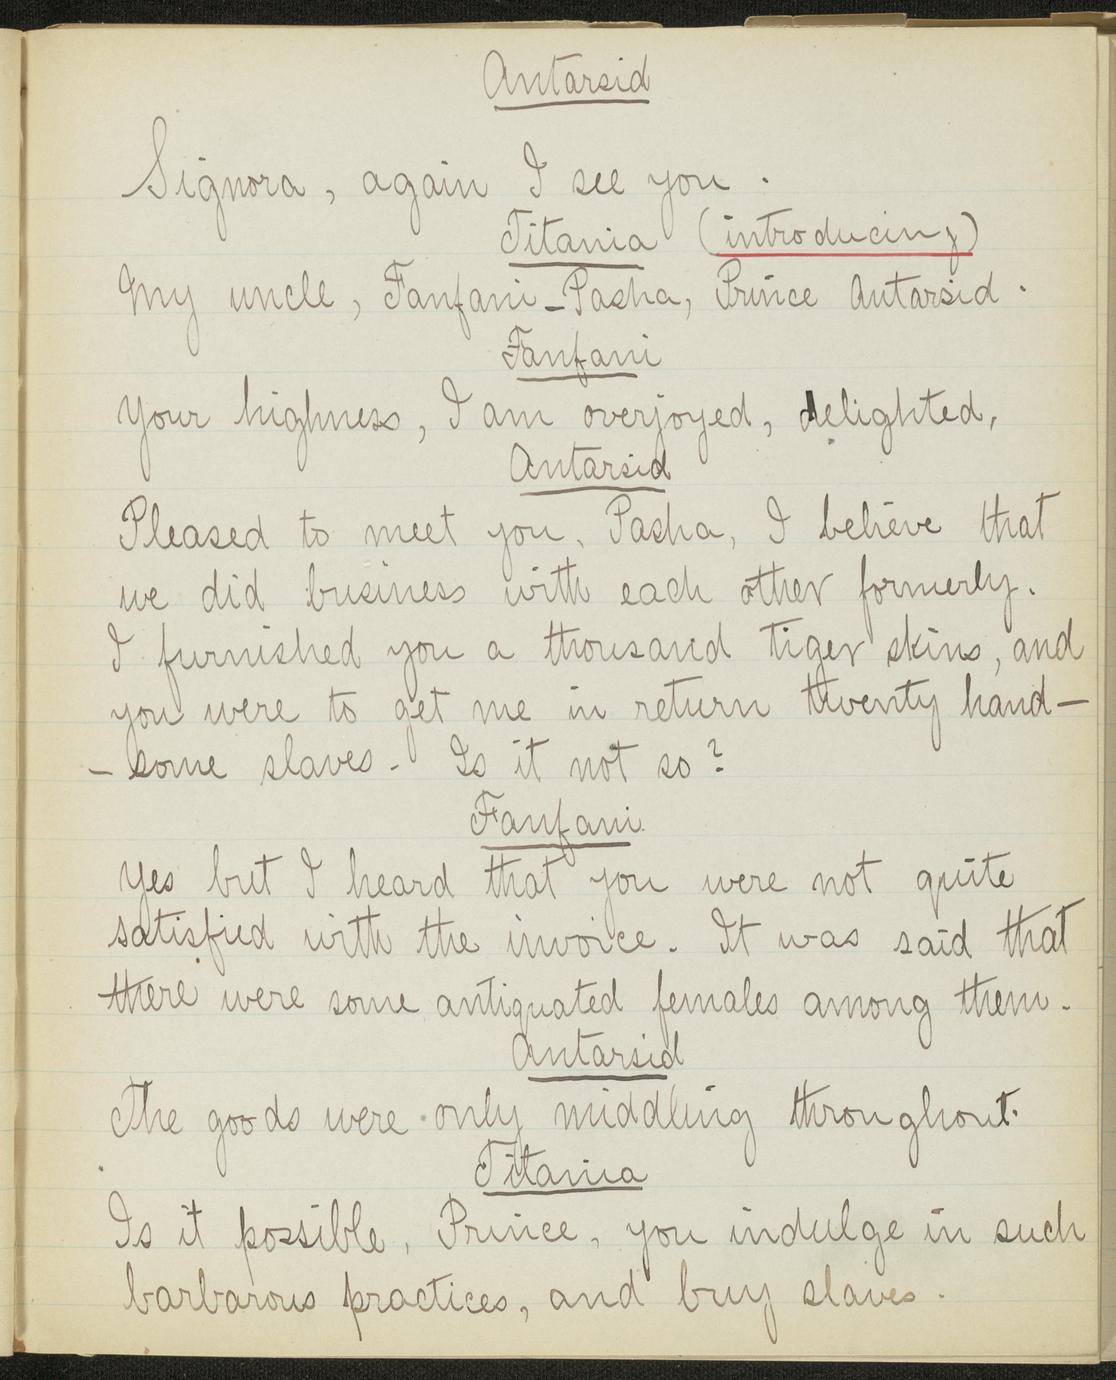 Antarsid
Signora, again I see you.
Titania (introducing)
My uncle, Fanfani-Pasha, Prince Antarsid.
Fanfani
Your highness, I am overjoyed, delighted,
Antarsid
Pleased to meet you, Pasha, I believe that
we did business with each other formerly.
I furnished you a thousand tiger skins, and
you were to get me in return twenty hand-
- some slaves. Is it not so?
Fanfani
Yes but I heard that you were not quite
satisfied with the invoice. It was said that
there were some antiquated females among them.
Antarsid
The goods were only middling throughout.
Titania
Is it possible, Prince, you indulge in such
barbarous practices, and buy slaves.